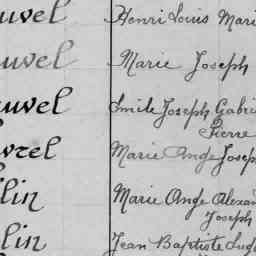 uvel Henri Louis Mari
uvel Marie Joseph
uvel Emile Joseph Gabri
Pierre
vrel Marie Ange Josep
lin Marie Ange Alexan
Joseph
lin Jean Baptiste Eug